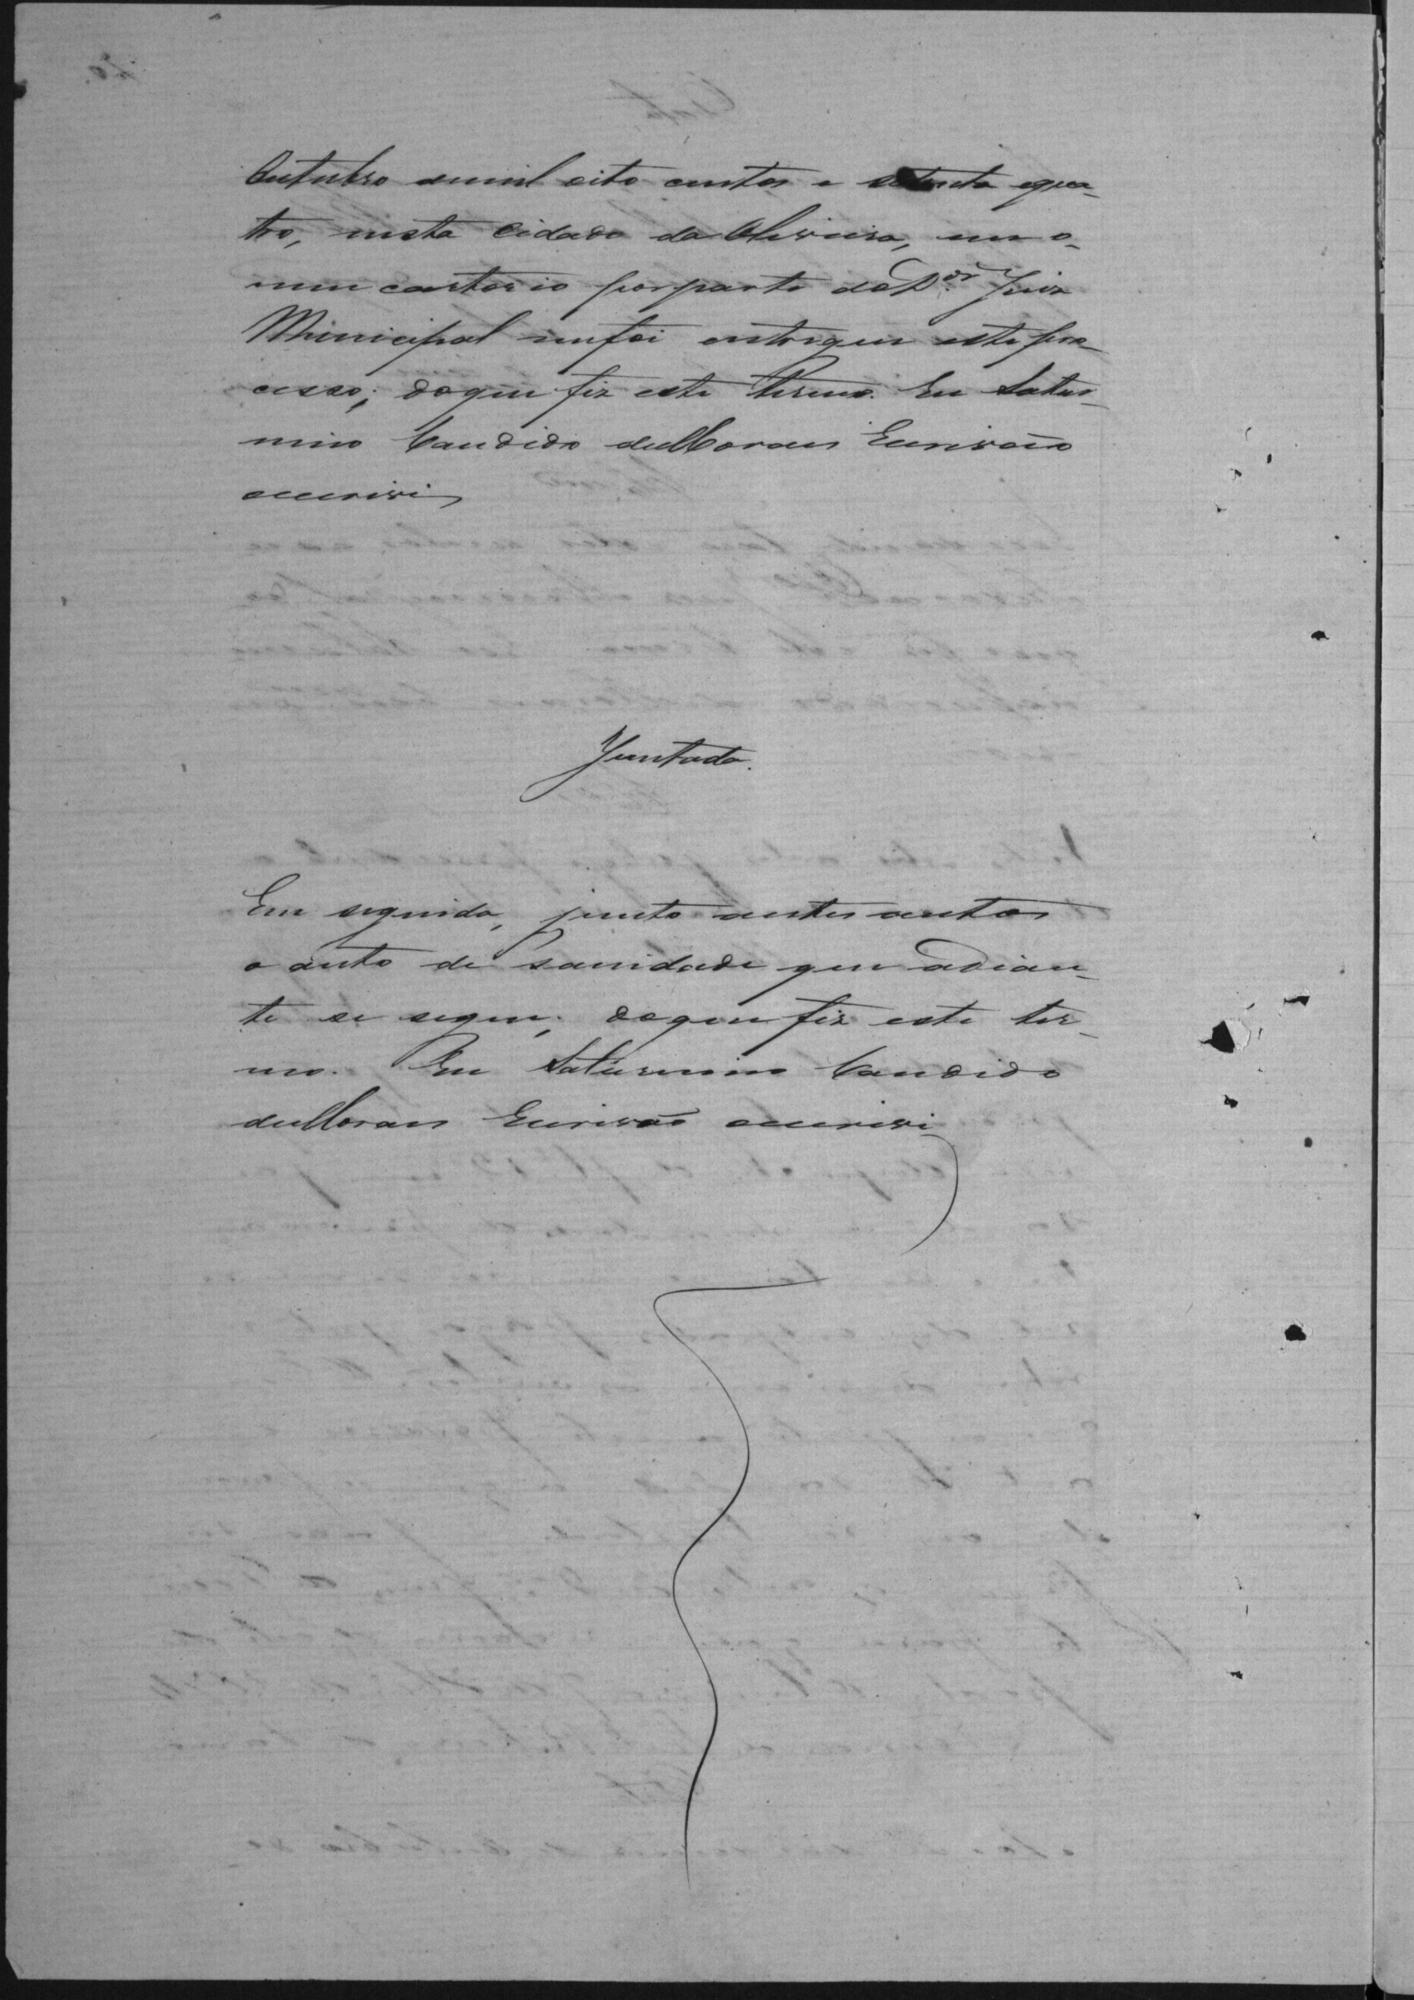 Outubro demil oito centos e setenta equa-
tro, nesta Cidade da Oliveira, em o
meu cartorio porparte doD.or Juiz
Municipal mefoi entregue este pro-
cesso; doque fiz este termo. Eu Satur-
nino Candido deMoraes Escrivão
escrevi
Juntada.
Em seguida, junto aestes autos
o auto de sanidade que adian-
te se segue; doque fiz este ter-
mo. Eu Saturnino Candido
deMoraes Escrivão escrevi